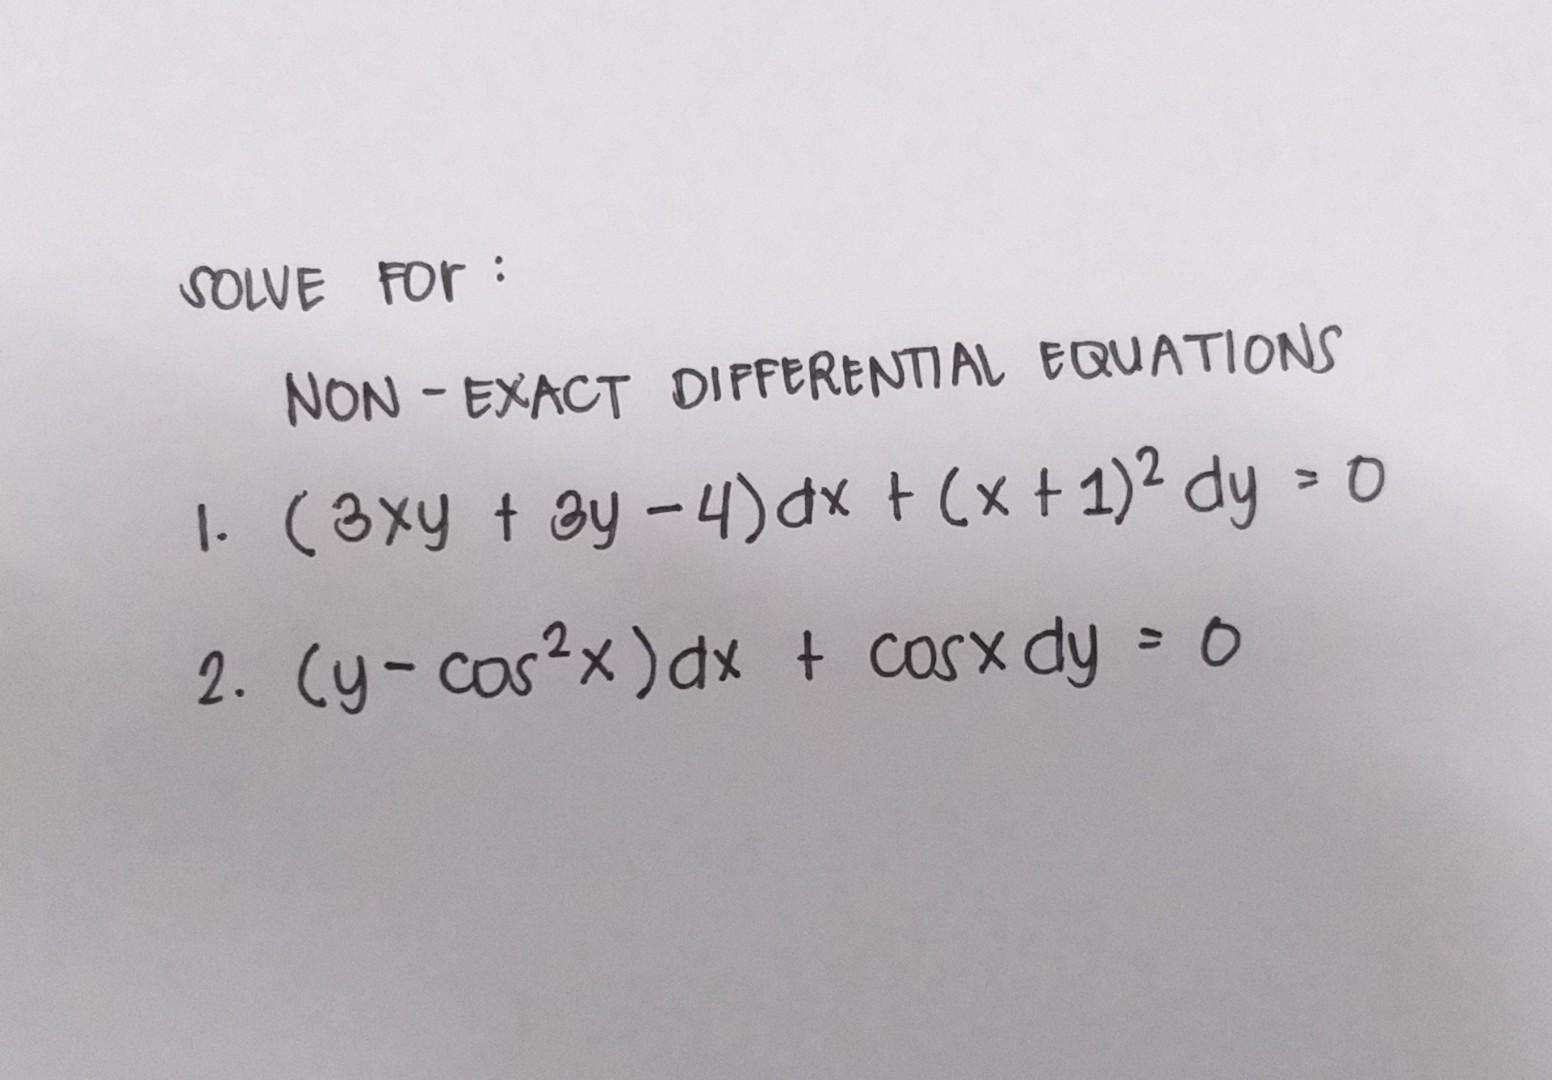 SOLVE FOr :
NON-EXACT DIFFERENTIAL EQUATIONS
1. (3xy + 3y - 4)dx + (x + 1)² dy = 0
2. (y - cos²x)dx + cosx dy = 0